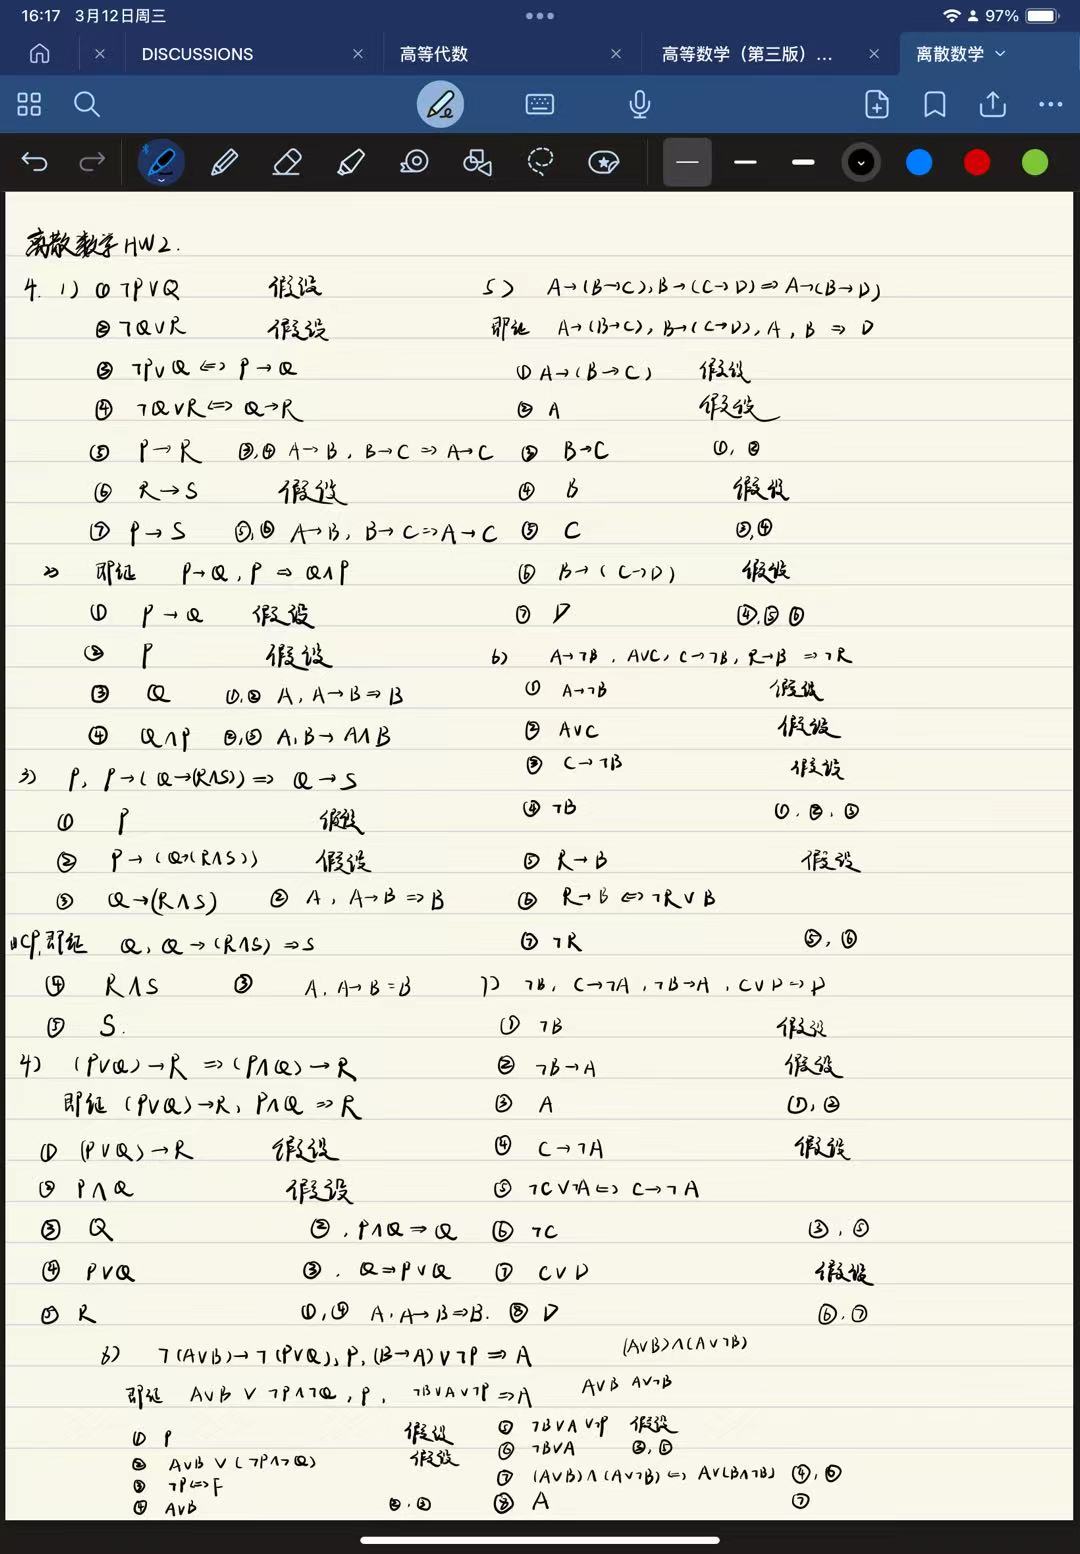 16:17 3月12日周三
97%
DISCUSSIONS
高等代数
高等数学（第三版）...
离散数学
离散数学HW2.
4. 1) ① ¬P∨Q 假设
② ¬Q∨R 假设
③ ¬P∨Q ⇔ P→Q
④ ¬Q∨R ⇔ Q→R
⑤ P→R ③,④ A→B, B→C ⇒ A→C
⑥ R→S 假设
⑦ P→S ⑤,⑥ A→B, B→C ⇒ A→C
2) 即证 P→Q, P ⇒ Q∧P
① P→Q 假设
② P 假设
③ Q ①,② A, A→B ⇒ B
④ Q∧P ②,③ A,B→ A∧B
3) P, P→(Q→(R∧S)) ⇒ Q→S
① P 假设
② P→(Q→(R∧S)) 假设
③ Q→(R∧S) ② A, A→B ⇒ B
由CP,即证 Q, Q→(R∧S) ⇒ S
④ R∧S ③ A, A→B = B
⑤ S.
4) (P∨Q)→R ⇒ (P∧Q)→R
即证 (P∨Q)→R, P∧Q ⇒ R
① (P∨Q)→R 假设
② P∧Q 假设
③ Q ②, P∧Q ⇒ Q
④ P∨Q ③, Q ⇒ P∨Q
⑤ R ①,④ A, A→B ⇒ B.
5) A→(B→C), B→(C→D) ⇒ A→(B→D)
即证 A→(B→C), B→(C→D), A, B ⇒ D
① A→(B→C) 假设
② A 假设
③ B→C ①, ②
④ B 假设
⑤ C ③,④
⑥ B→(C→D) 假设
⑦ D ④,⑤ ⑥
6) A→¬B, A∨C, C→¬B, R→B ⇒ ¬R
① A→¬B 假设
② A∨C 假设
③ C→¬B 假设
④ ¬B ①, ②, ③
⑤ R→B 假设
⑥ R→B ⇔ ¬R∨B
⑦ ¬R ⑤, ⑥
7) ¬B, C→¬A, ¬B→A, C∨D ⇒ D
① ¬B 假设
② ¬B→A 假设
③ A ①, ②
④ C→¬A 假设
⑤ ¬C∨¬A ⇔ C→¬A
⑥ ¬C ③, ⑤
⑦ C∨D 假设
⑧ D ⑥, ⑦
8) ¬(A∨B)→¬(P∨Q), P, (B→A)∨¬P ⇒ A
(A∨B)∧(A∨¬B)
即证 A∨B ∨ ¬P∧¬Q, P, ¬B∨A∨¬P ⇒ A
A∨B A∨¬B
① P 假设
② A∨B ∨(¬P∧¬Q) 假设
③ ¬P ⇔ F
④ A∨B ②,③
⑤ ¬B∨A∨¬P 假设
⑥ ¬B∨A ③,⑤
⑦ (A∨B)∧(A∨¬B) ⇔ A∨(B∧¬B) ④,⑥
⑧ A ⑦